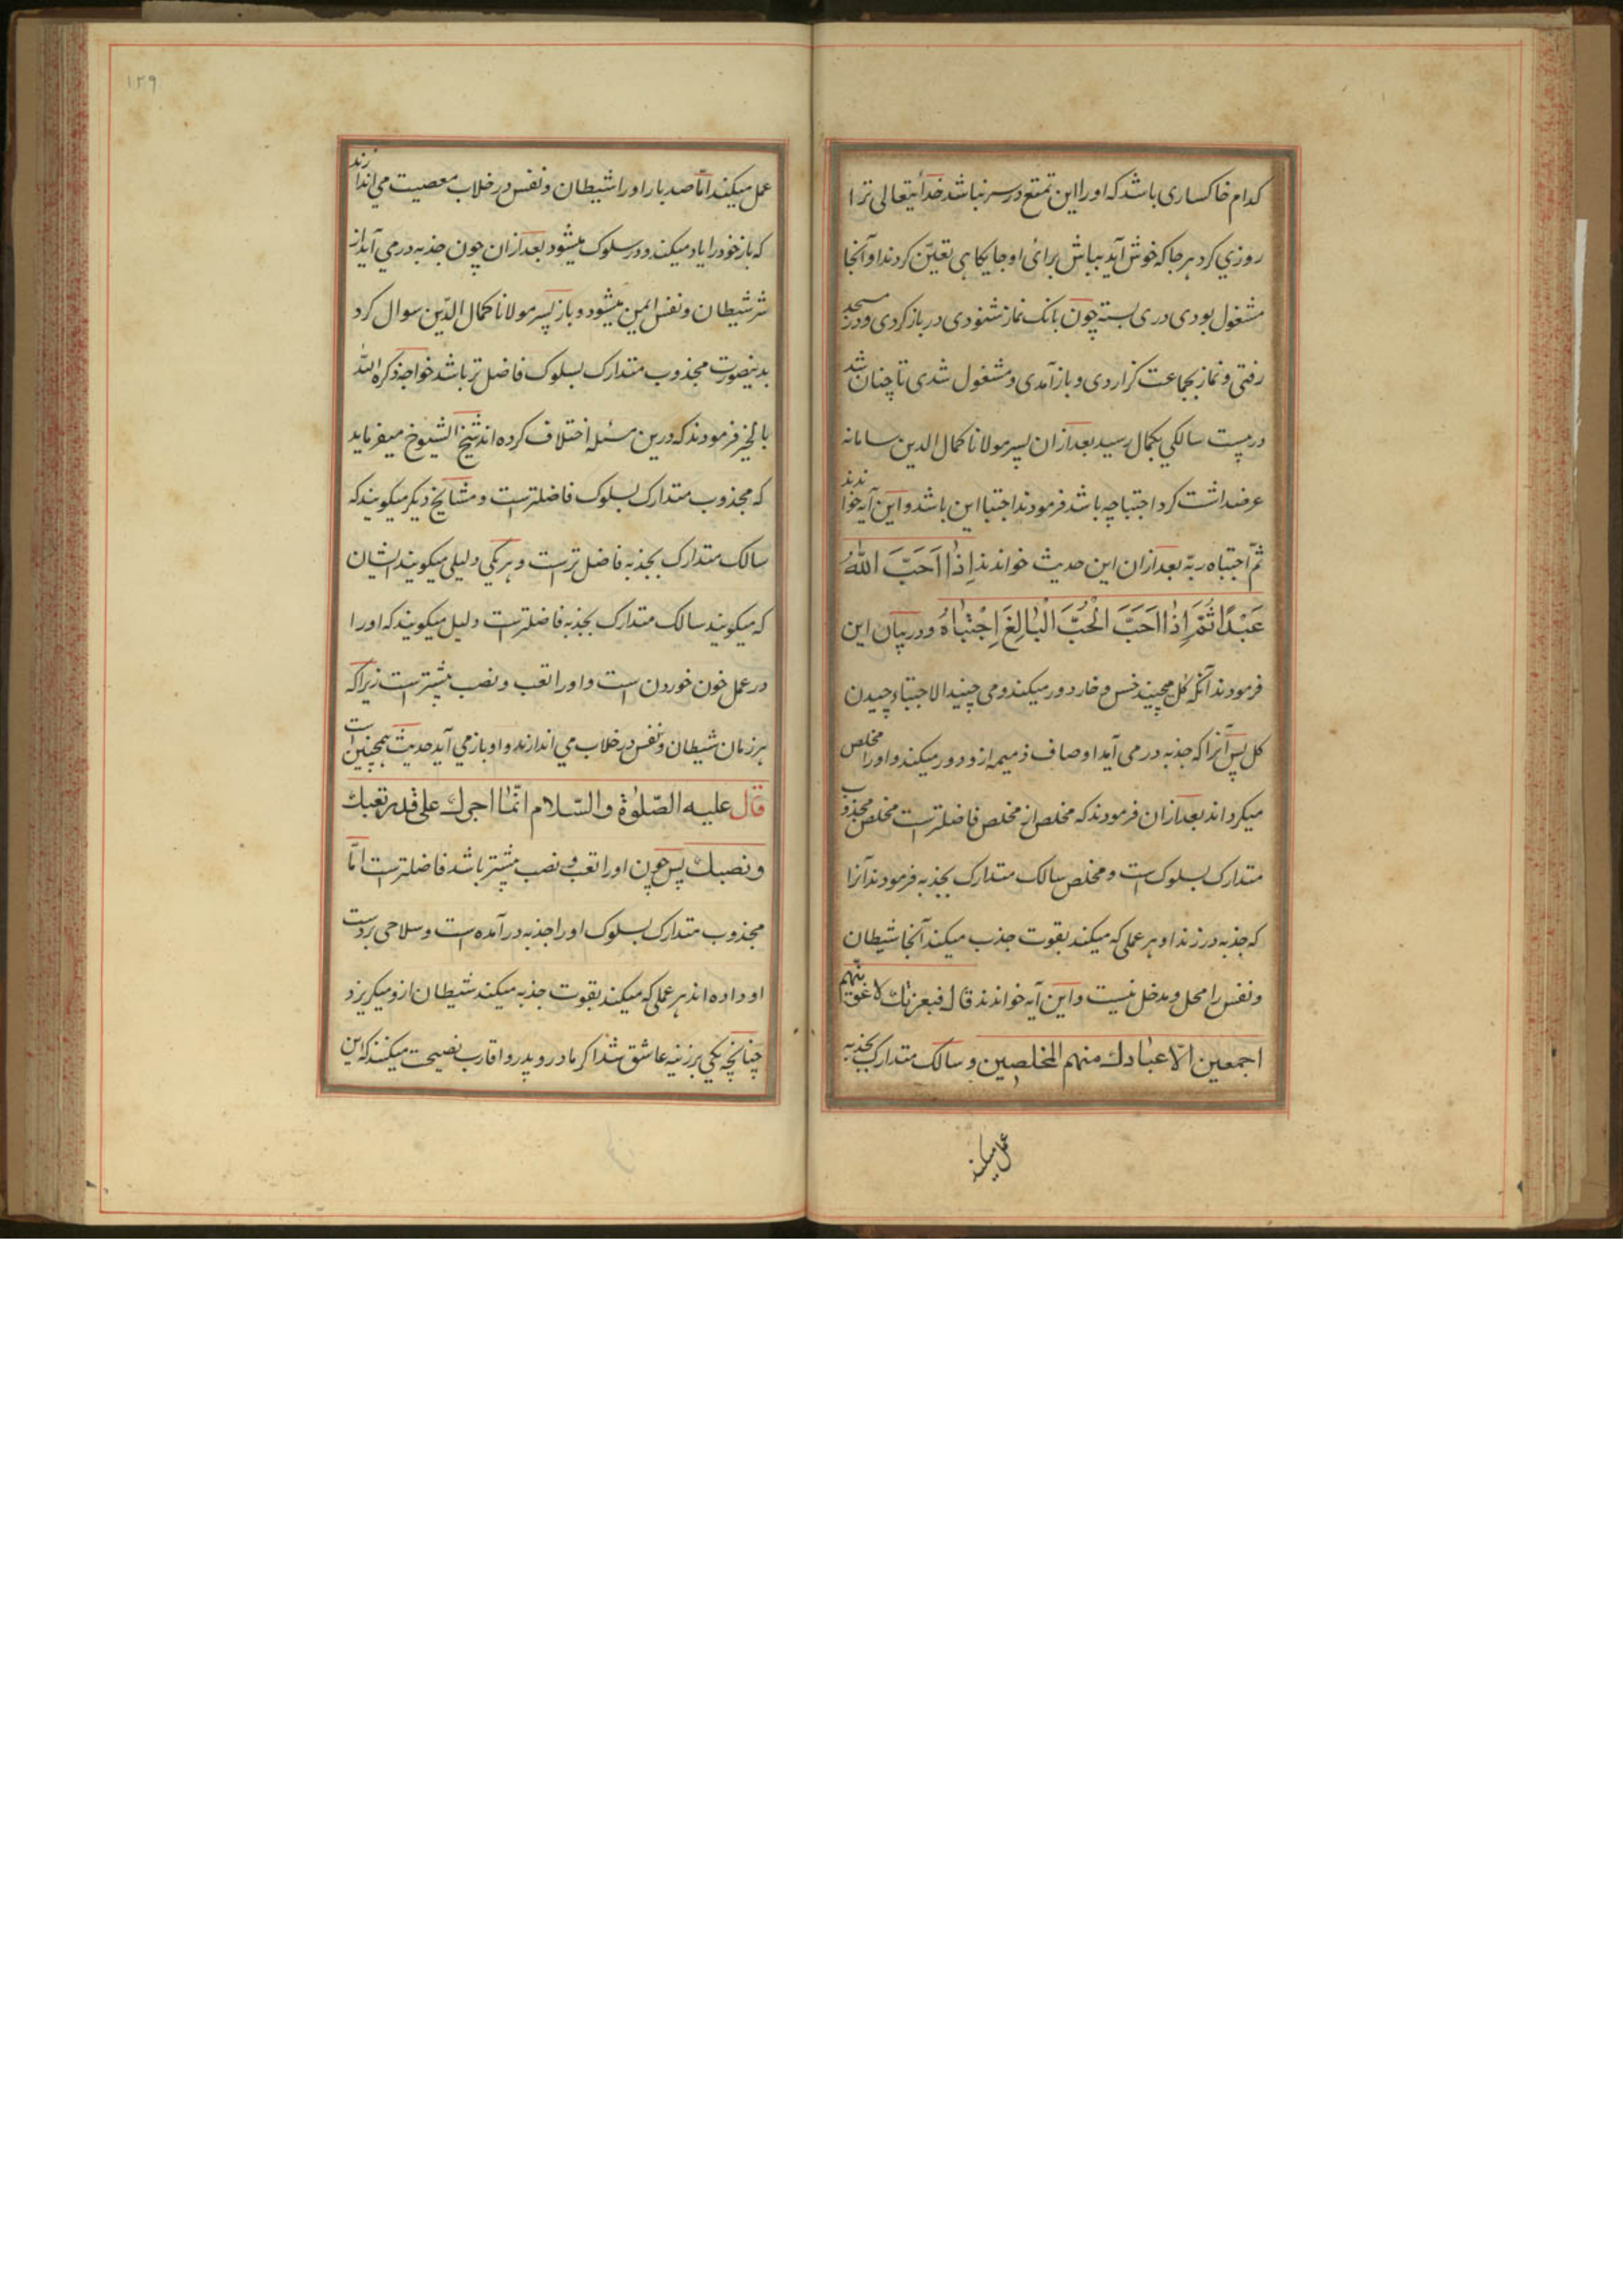 کدام خاکساری باشد که اورا این تمتع در سر نباشد خدایتعالی ترا
روزی کرد هرجا که خوش آید بباش برای او جایگاهی تعین کردند او آنجا
مشغول بودی دری بسته چون بانک نماز شنودی در باز کردی و در مسجد
رفتی و نماز بجماعت گزاردی و باز آمدی و مشغول شدی تا چنان شد
در بیست سالگی بکمال رسید بعد ازان پسر مولانا کمال الدین سامانه
عرضداشت کرد اجتبا چه باشد فرمودند اجتبا این باشد و این آیه خواندند
ثمّ اجتباه ربّه بعد ازان این حدیث خواندند اِذَا اَحَبَّ اللهُ
عَبْدًا ثُمَّ اِذَا اَحَبَّ الْحُبَّ الْبَالِغَ اِجْتَبَاهُ و در بیان این
فرمودند آنکه گل میچیند خس و خار دور میکند و می چیند الاجتباء چیدن
گل پس آنرا که جذبه در می آید اوصاف ذمیمه ازو دور میکند و اورا مخلص
میگرداند بعد ازان فرمودند که مخلص از مخلص فاضلترست مخلص مجذوب
متدارک بسلوک است و مخلص سالک متدارک بجذبه فرمودند آنرا
که جذبه در زند او هر عملی که میکند بقوت جذب میکند آنجا شیطان
و نفس را محل و مدخل نیست و این آیه خواندند قال فبعزتک لاغوینهم
اجمعین الّا عبادك منهم المخلصین و سالک متدارک بجذبه
عمل میکند
۱۲۹
عمل میکند امّا صد بار اورا شیطان و نفس در خلاب معصیت می اندازند
که باز خود را یاد میکند و در سلوک میشود بعد ازان چون جذبه در می آید از
شر شیطان و نفس ایمن میشود و باز پسر مولانا کمال الدّین سوال کرد
بدینصورت مجذوب متدارک بسلوک فاضل تر باشد خواجه ذکره الله
بالخیر فرمودند که درین مسئله اختلاف کرده اند شیخ الشیوخ میفرماید
که مجذوب متدارک بسلوک فاضلترست و مشایخ دیگر میگویند که
سالک متدارک بجذبه فاضل ترست و هر یکی دلیلی میگویند ایشان
که میگویند سالک متدارک بجذبه فاضلترست دلیل میگویند که اورا
در عمل خون خوردن است و اورا تعب و نصب بیشترست زیرا که
هر زمان شیطان و نفس در خلاب می اندازند و او باز می آید حدیث همچنین است
قال علیه الصّلوٰة والسّلام انّما اجرك علی قدر تعبك
و نصبك پس چون اورا تعب و نصب بیشتر باشد فاضلترست امّا
مجذوب متدارک بسلوک اورا جذبه در آمده است و سلاحی بر دست
او داده اند هر عملی که میکند بقوت جذبه میکند شیطان ازو میگریزد
چنانچه یکی بر زنی عاشق شد اگر مادر و پدر و اقارب نصیحت میکنند که این